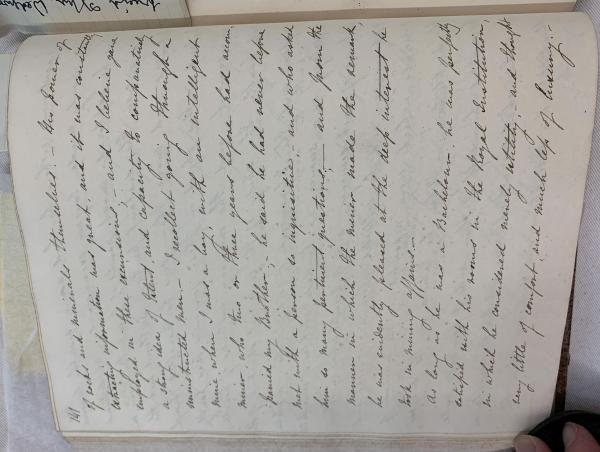 141
of rocks and minerals themselves. – His power of
extracting information was great, and it was constantly
employed in these excursions; – and I believe gave
a strong idea of talent and capacity to comparatively
uninstructed men – I recollect going through a
mine when I was a boy, with an intelligent
miner who two or three years before had accom.
panied my Brother; – he said he had never before
met with a person so inquisitive, and who asked
him so many pertinent questions. – and from the
manner in which the miner made the remark,
he was evidently pleased at the deep interest he
took in mining affairs. –
As long as he was a Bachelour he was perfectly
satisfied with his rooms in the Royal Institution,
in which he considered merely utility, and thought
very little of comfort and much less of luxury: –